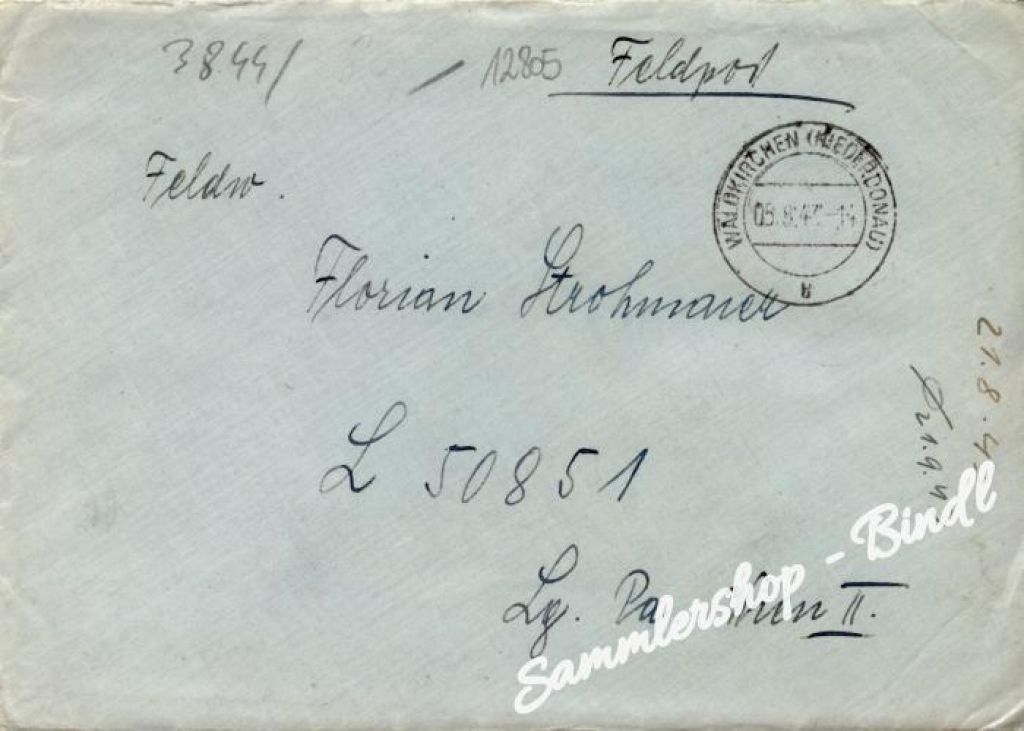 3844/
12805 Feldpost
WALDKIRCHEN (NIEDERDONAU)
a
Feldw.
Florian Strohmaier
L 50851
Lg. Pa Wien II.
21.8.4
21.9.4
Sammlershop - Bindl